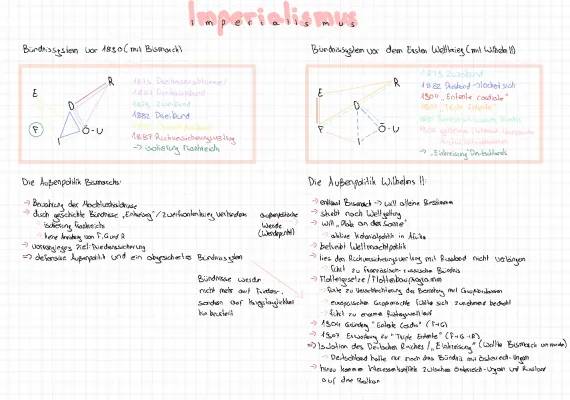 Imperialismus
imperialismus
Bündnissystem vor 1890 (mit Bismarck)
E
R
D
F
Ö-U
I
1873 Dreikaiserabkommen
1881 Dreikaiserbund
1879 Zweibund
1882 Dreibund
1887 Rückversicherungsvertrag
→ Isolierung Frankreich
Die Außenpolitik Bismarcks:
→ Bewahrung der
→ durch geschickte Bündnisse "Einkreisung" / Zweifrontenkrieg verhindern
Isolierung Frankreichs
keine Annäherung von F, G und R
→ vorrangiges Ziel: Friedenssicherung
⇒ defensive Außenpolitik und ein abgesichertes Bündnissystem
außenpolitische
Wende
(Wendepunkt)
Bündnisse werden
nicht mehr auf Friedens-,
sondern auf Kriegstauglichkeit
hin beurteilt
Bündnissystem vor dem Ersten Weltkrieg (mit Wilhelm II)
E
R
D
F
Ö-U
I
1879 Zweibund
1882 Dreibund →
1904 "Entente cordiale"
1907 "Triple Entente"
→ "Einkreisung" Deutschlands
Die Außenpolitik Wilhelms II:
→ entlässt Bismarck → will alleine bestimmen
→ strebt nach Weltgeltung
→ will "Platz an der Sonne"
aktive Kolonialpolitik in Afrika
→ betreibt Weltmachtpolitik
→ lies den Rückversicherungsvertrag mit Russland nicht verlängern
führt zu französisch-russische Bündnis
→ Flottengesetze / Flottenbauprogramm
führte zu Verschlechterung der Beziehung mit Großbritannien
europäischen Großmächte fühlte sich zunehmend bedroht
führt zu enormen Rüstungswettlauf
→ 1904 Gründung "Entente Cordiale" (F+G)
→ 1907 Erweiterung zu "Triple Entente" (F+G+R)
⇒ Isolation des Deutschen Reiches / "Einkreisung" (wollte Bismarck vermeiden)
Deutschland hatte nur noch das Bündnis mit Österreich-Ungarn
→ hinzu kommen Interessenkonflikte zwischen Österreich-Ungarn und Russland
auf dem Balkan